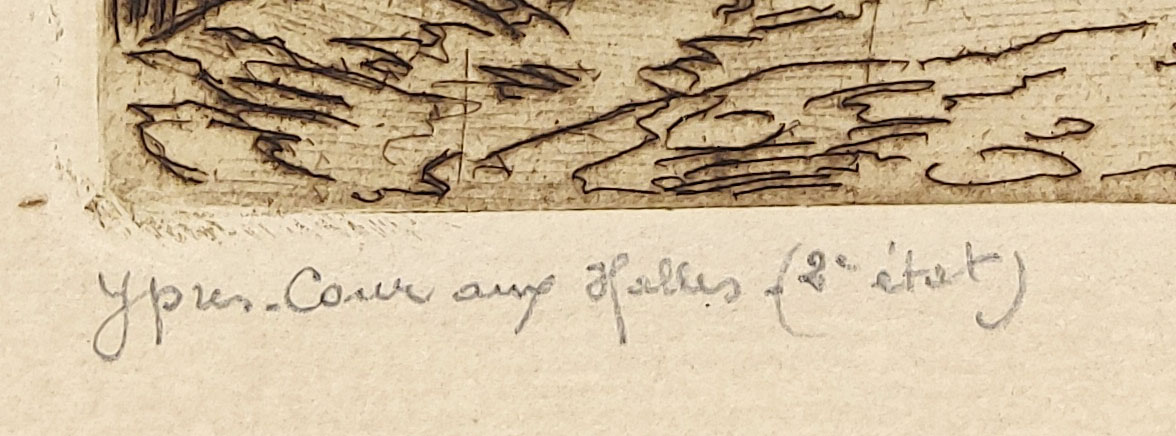 Ypres - Cour aux Halles (2e état)